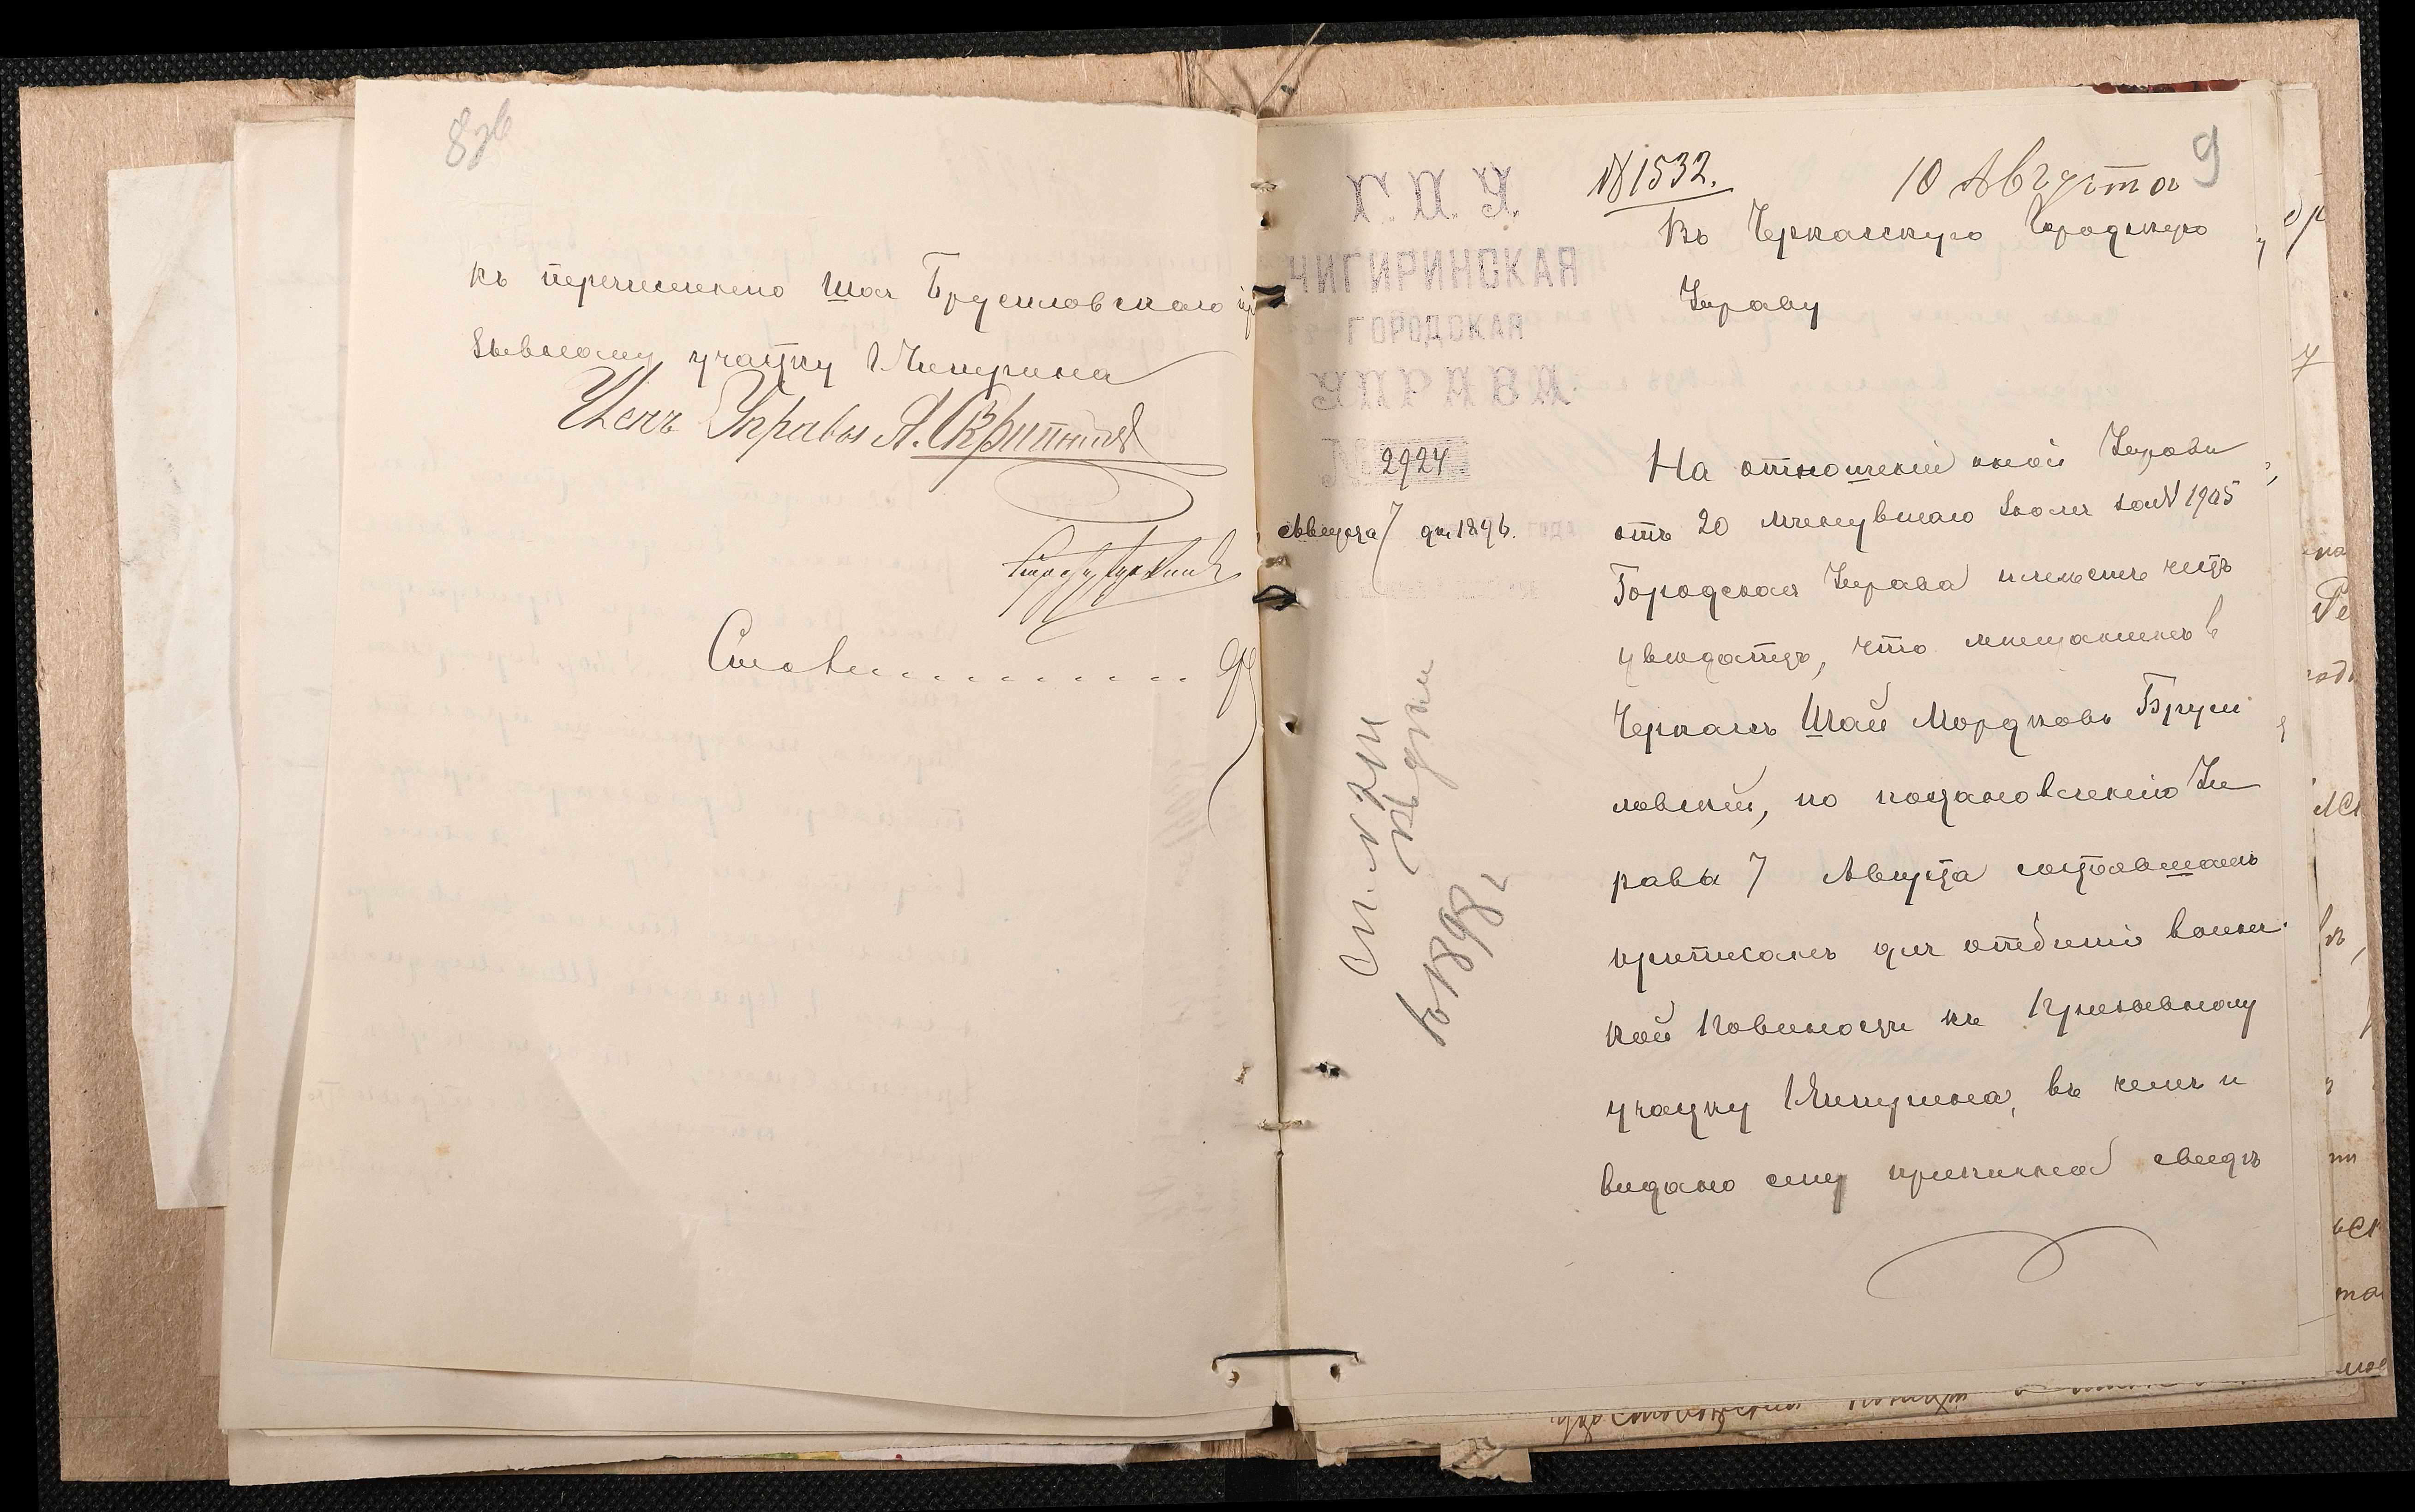 8 об
къ перечисленію Шаи Брусиловскаго къ при
зывному участку г. Чигирина
Членъ Управы А.
9
№ 1532.
10 Августа
Г. П. У.
ЧИГИРИНСКАЯ
ГОРОДСКАЯ
УПРАВА
№ 2924
Августа 7 дня 1896.
года
Въ Черкасскую Городскую
Управу
На отношеніе оной Управы
отъ 20 минувшаго Іюля за № 1905
Городская Управа имѣетъ честь
увѣдомить, что мѣщанинъ г.
Черкасъ Шая Мордковъ Бруси
ловскій, по постановленію Уп
равы 7 Августа состоявшемъ
приписанъ для отбытія воинс
кой повинности къ призывному
участку г. Чигирина, въ чемъ и
видано ему приписное свидѣ
въ 1898 г